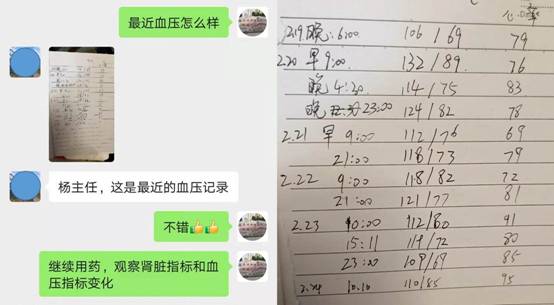 最近血压怎么样
杨主任，这是最近的血压记录
不错👍👍
继续用药，观察肾脏指标和血
压指标变化
心率
2.19 晚: 6:00 106/69 79
2.20 早 9:00 132/89 76
晚 4:30 114/75 83
晚 23:00 124/82 78
2.21 早 9:00 112/76 69
21:00 118/73 79
2.22 9:00 118/82 72
21:00 121/77 81
2.23 10:00 112/80 91
15:11 119/72 80
23:00 109/69 85
2.24 10:10 110/85 95